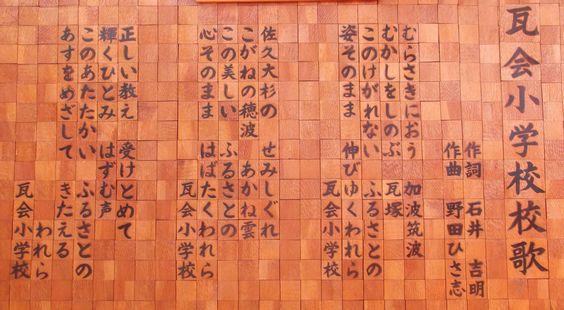 瓦会小学校校歌
作詞 石井 吉明
作曲 野田ひさ志
むらさきにおう 加波筑波
むかしをしのぶ 瓦塚
このけがれない ふるさとの
姿そのまま 伸びゆくわれら
瓦会小学校
佐久大杉の せみしぐれ
こがねの穂波 あかね雲
この美しい ふるさとの
心そのまま はばたくわれら
瓦会小学校
正しい教え 受けとめて
輝くひとみ はずむ声
このあたたかい ふるさとの
あすをめざして きたえる
われら
瓦会小学校